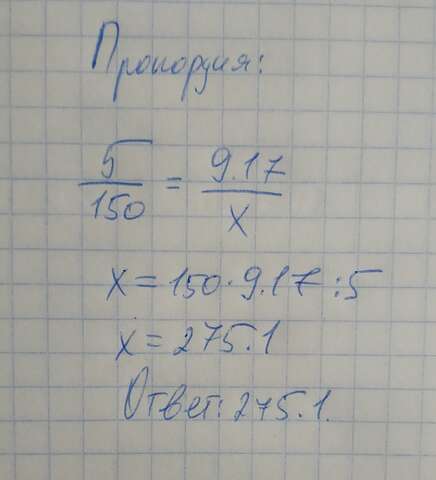 Пропорция:
5/150 = 9.17/x
x = 150 · 9.17 : 5
x = 275.1
Ответ: 275.1.